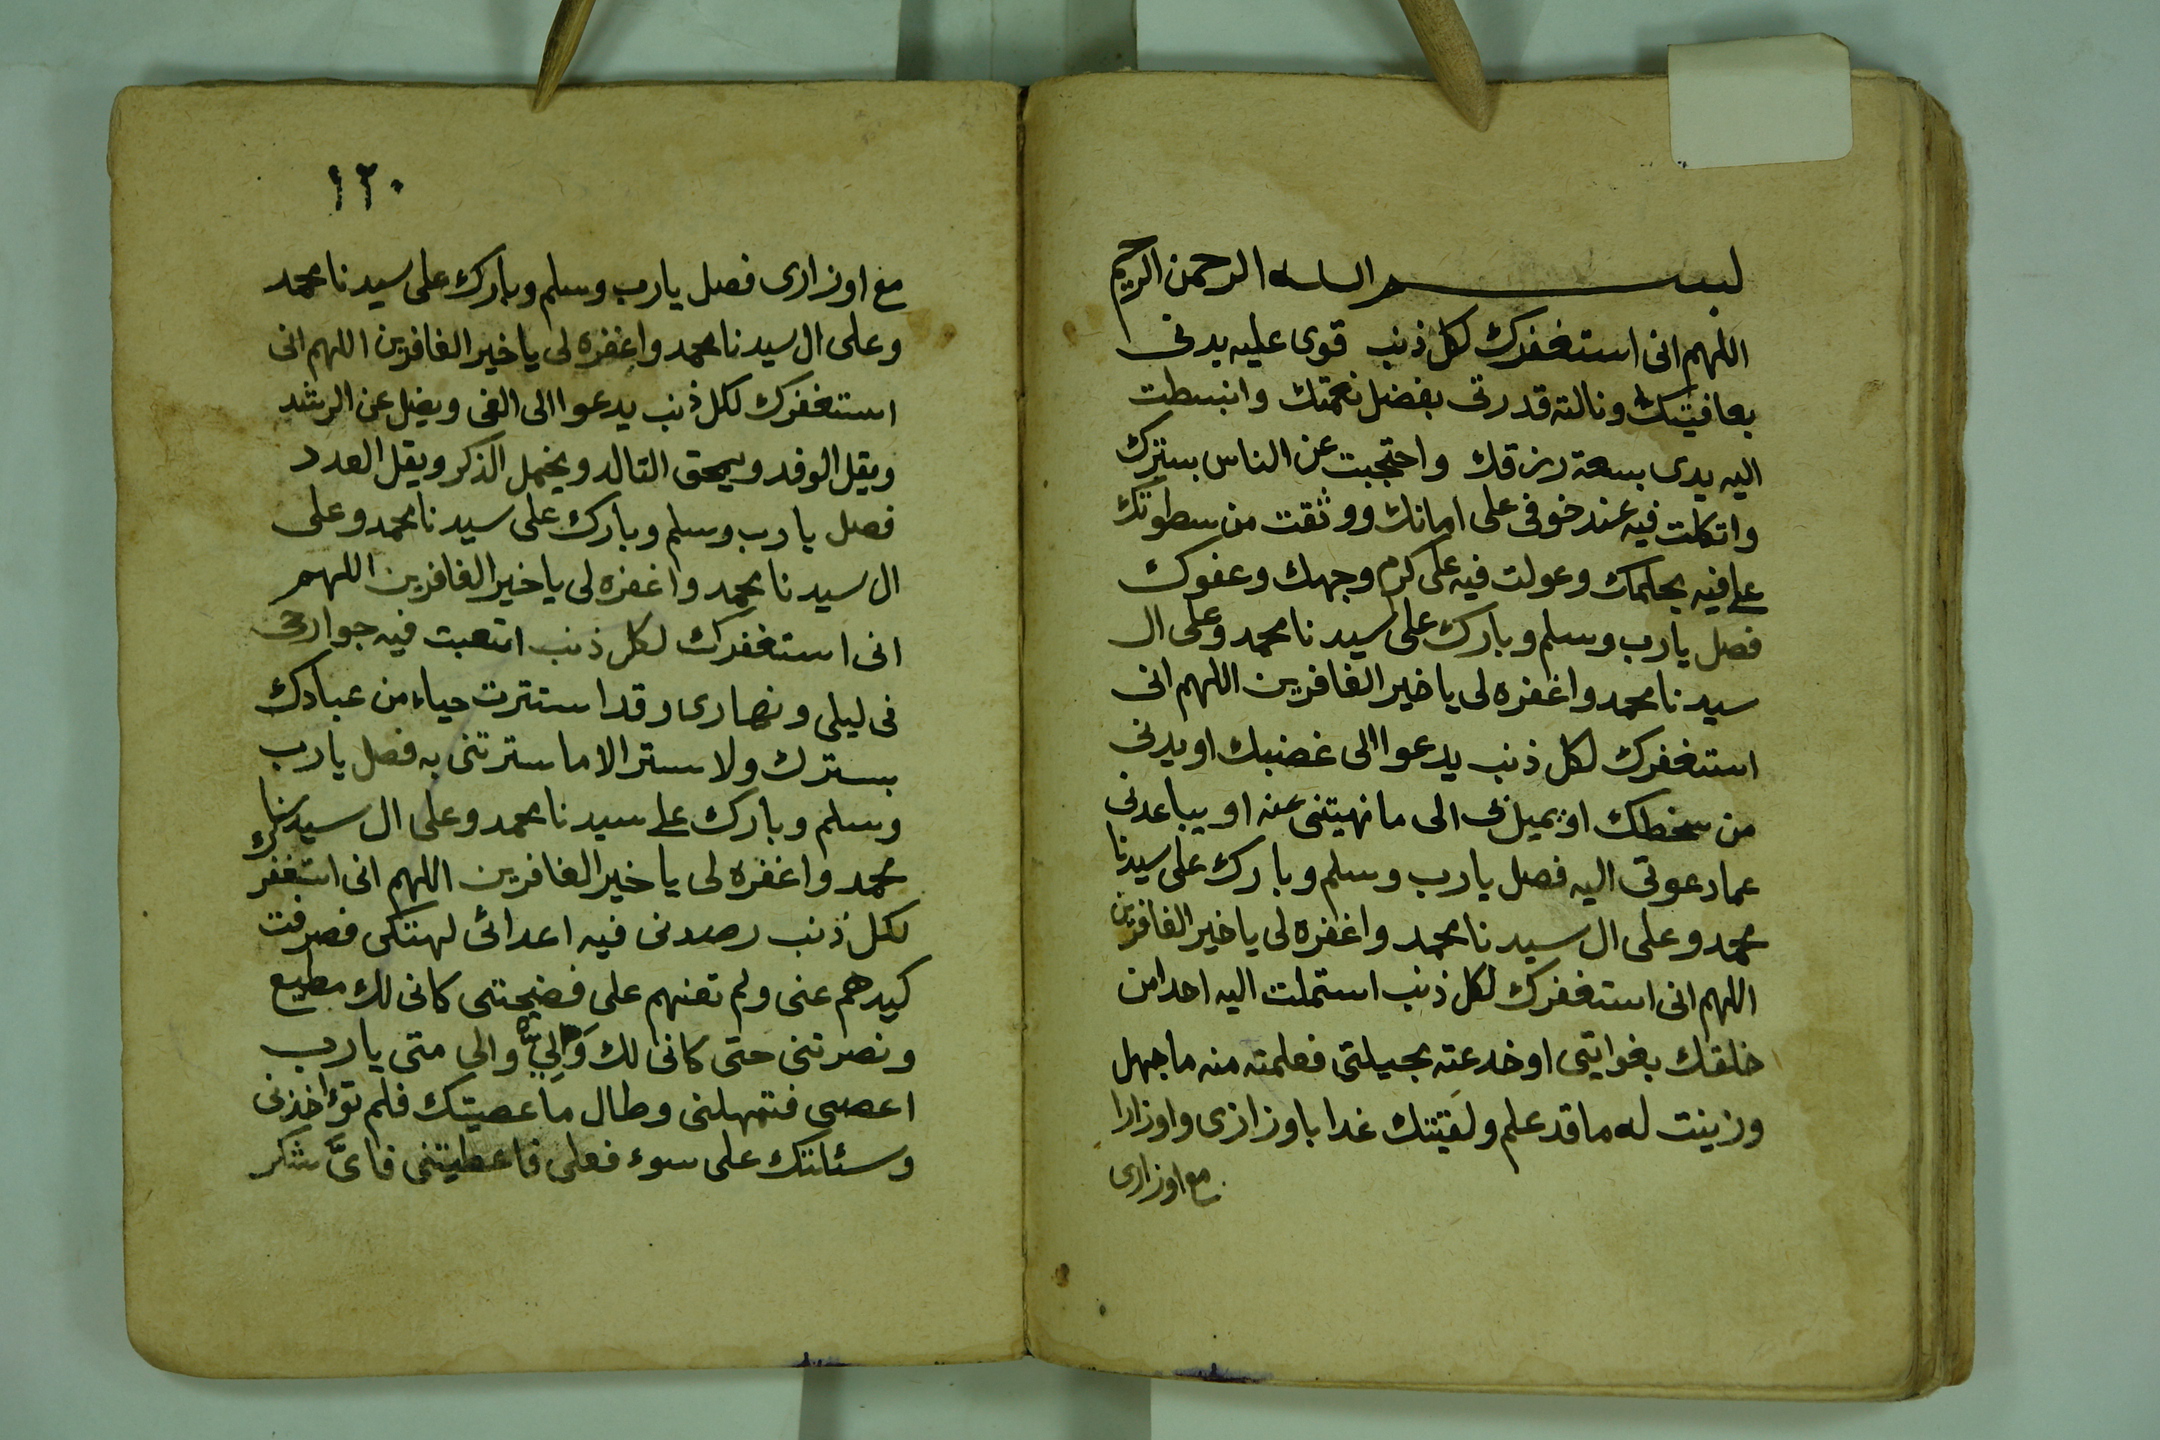 بسم الله الرحمن الرحيم
اللهم انى استغفرك لكل ذنب قوى عليه بدنى
بعافيتك ونالته قدرتى بفضل نعمتك وانبسطت
اليه يدى بسعة رزقك واحتجبت عن الناس بسترك
واتكلت فيه عند خوفى على امانك ووثقت من سطوتك
على فيه بحلمك وعولت فيه على كرم وجهك وعفوك
فصل يارب وسلم وبارك على سيدنا محمد وعلى ال
سيدنا محمد واغفره لى ياخير الغافرين اللهم انى
استغفرك لكل ذنب يدعوا الى غضبك او يدنى
من سخطك او يميل بى الى ما نهيتنى عنه او يباعدنى
عما دعوتى اليه فصل يارب وسلم وبارك على سيدنا
محمد وعلى ال سيدنا محمد واغفره لى ياخير الغافرين
اللهم انى استغفرك لكل ذنب استملت اليه احدا من
خلقك بغوايتى او خدعته بحيلتى فعلمته منه ماجهل
وزينت له ما قد علم ولقيتك غدا باوزازى واوزارا
مع اوزارى
١٢٠
مع اوزارى فصل يارب وسلم وبارك على سيدنا محمد
وعلى ال سيدنا محمد واغفره لى ياخير الغافرين اللهم انى
استغفرك لكل ذنب يدعوا الى الغى ويضل عن الرشد
ويقل الوفد ويمحق التالد ويخمل الذكر ويقل العدد
فصل يارب وسلم وبارك على سيدنا محمد وعلى
ال سيدنا محمد واغفره لى ياخير الغافرين اللهم
انى استغفرك لكل ذنب اتعبت فيه جوارحى
فى ليلى ونهارى وقد استترت حياء من عبادك
بسترك ولا ستر الا ما سترتنى به فصل يارب
وسلم وبارك على سيدنا محمد وعلى ال سيدنا
محمد واغفره لى ياخير الغافرين اللهم انى استغفرك
لكل ذنب رصدنى فيه اعدائى لهتكى فصرفت
كيدهم عنى ولم تعنهم على فضيحتى كانى لك مطيع
ونصرتنى حتى كانى لك وَلِىٌّ والى متى يارب
اعصى فتمهلنى وطال ما عصيتك فلم تؤاخذنى
وسئلتك على سوء فعلى فاعطيتنى فاىَّ شكر